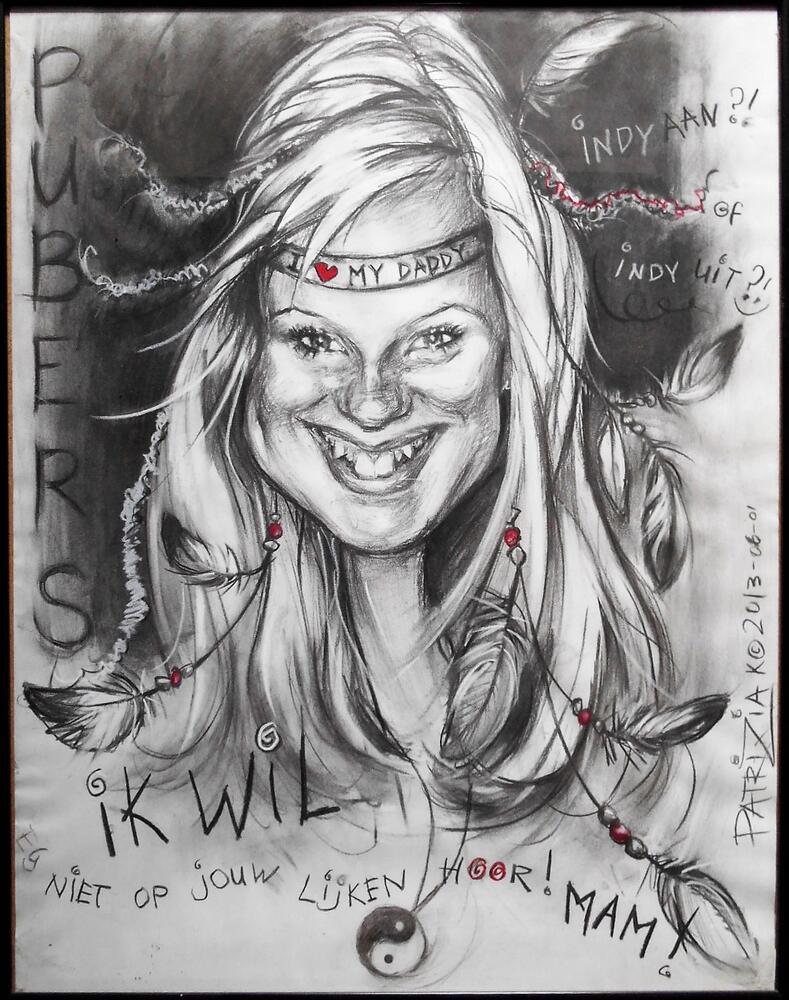 PUBERS
iNDY AAN?!
of
iNDY UiT?!
I ♥ MY DADDY
iK WiL
NiET OP JOUW LiJKEN HOOR!
MAM X
PATRiZiA K©2013-06-01